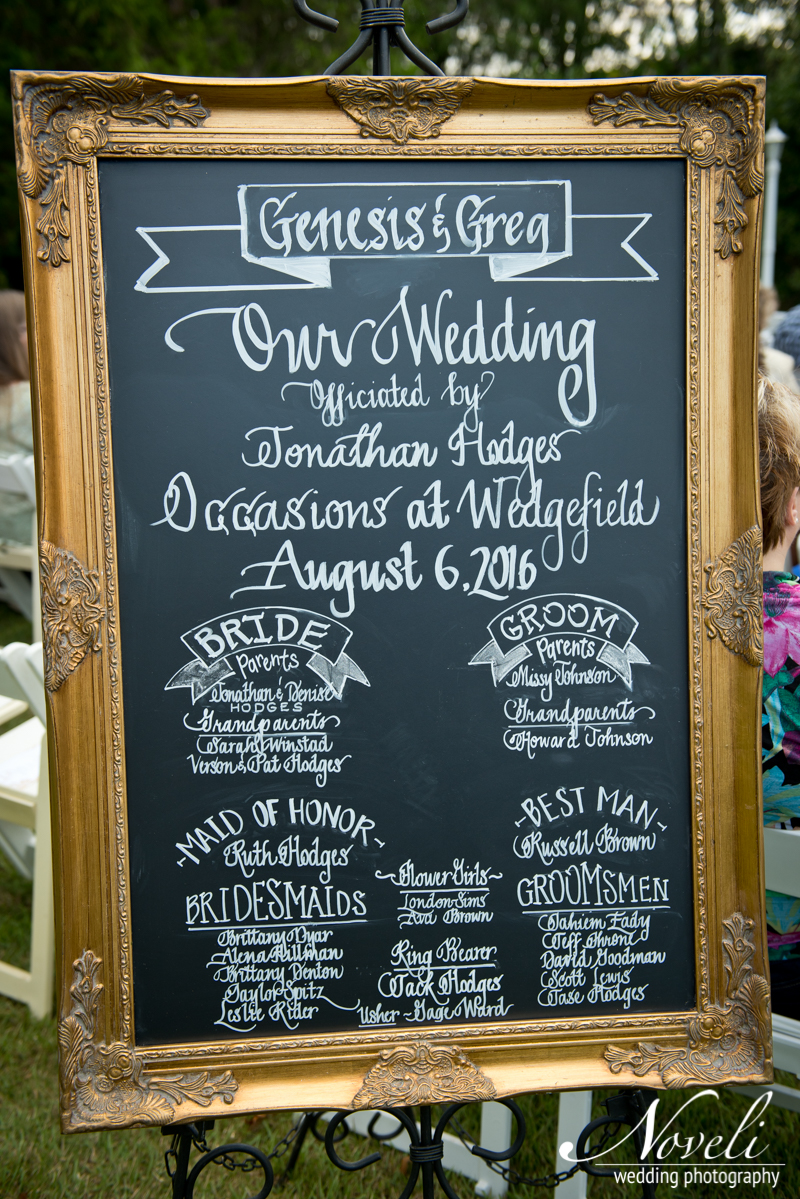 Genesis & Greg
Our Wedding
Officiated by
Jonathan Hodges
Occasions at Wedgefield
August 6, 2016
BRIDE
Parents
Jonathan & Denise
HODGES
Grandparents
Sarah Winstad
Verson & Pat Hodges
GROOM
Parents
Missy Johnson
Grandparents
Howard Johnson
-MAID OF HONOR-
Ruth Hodges
BRIDESMAIDS
Brittany Dyar
Alena Hillman
Brittany Denton
Taylor Spitz
Leslie Rider
Flower Girls
London Sims
Ava Brown
Ring Bearer
Jack Hodges
Usher - Gage Ward
-BEST MAN-
Russell Brown
GROOMSMEN
Tahiem Eady
Jeff
David Goodman
Scott Lewis
Jase Hodges
Noveli
wedding photography